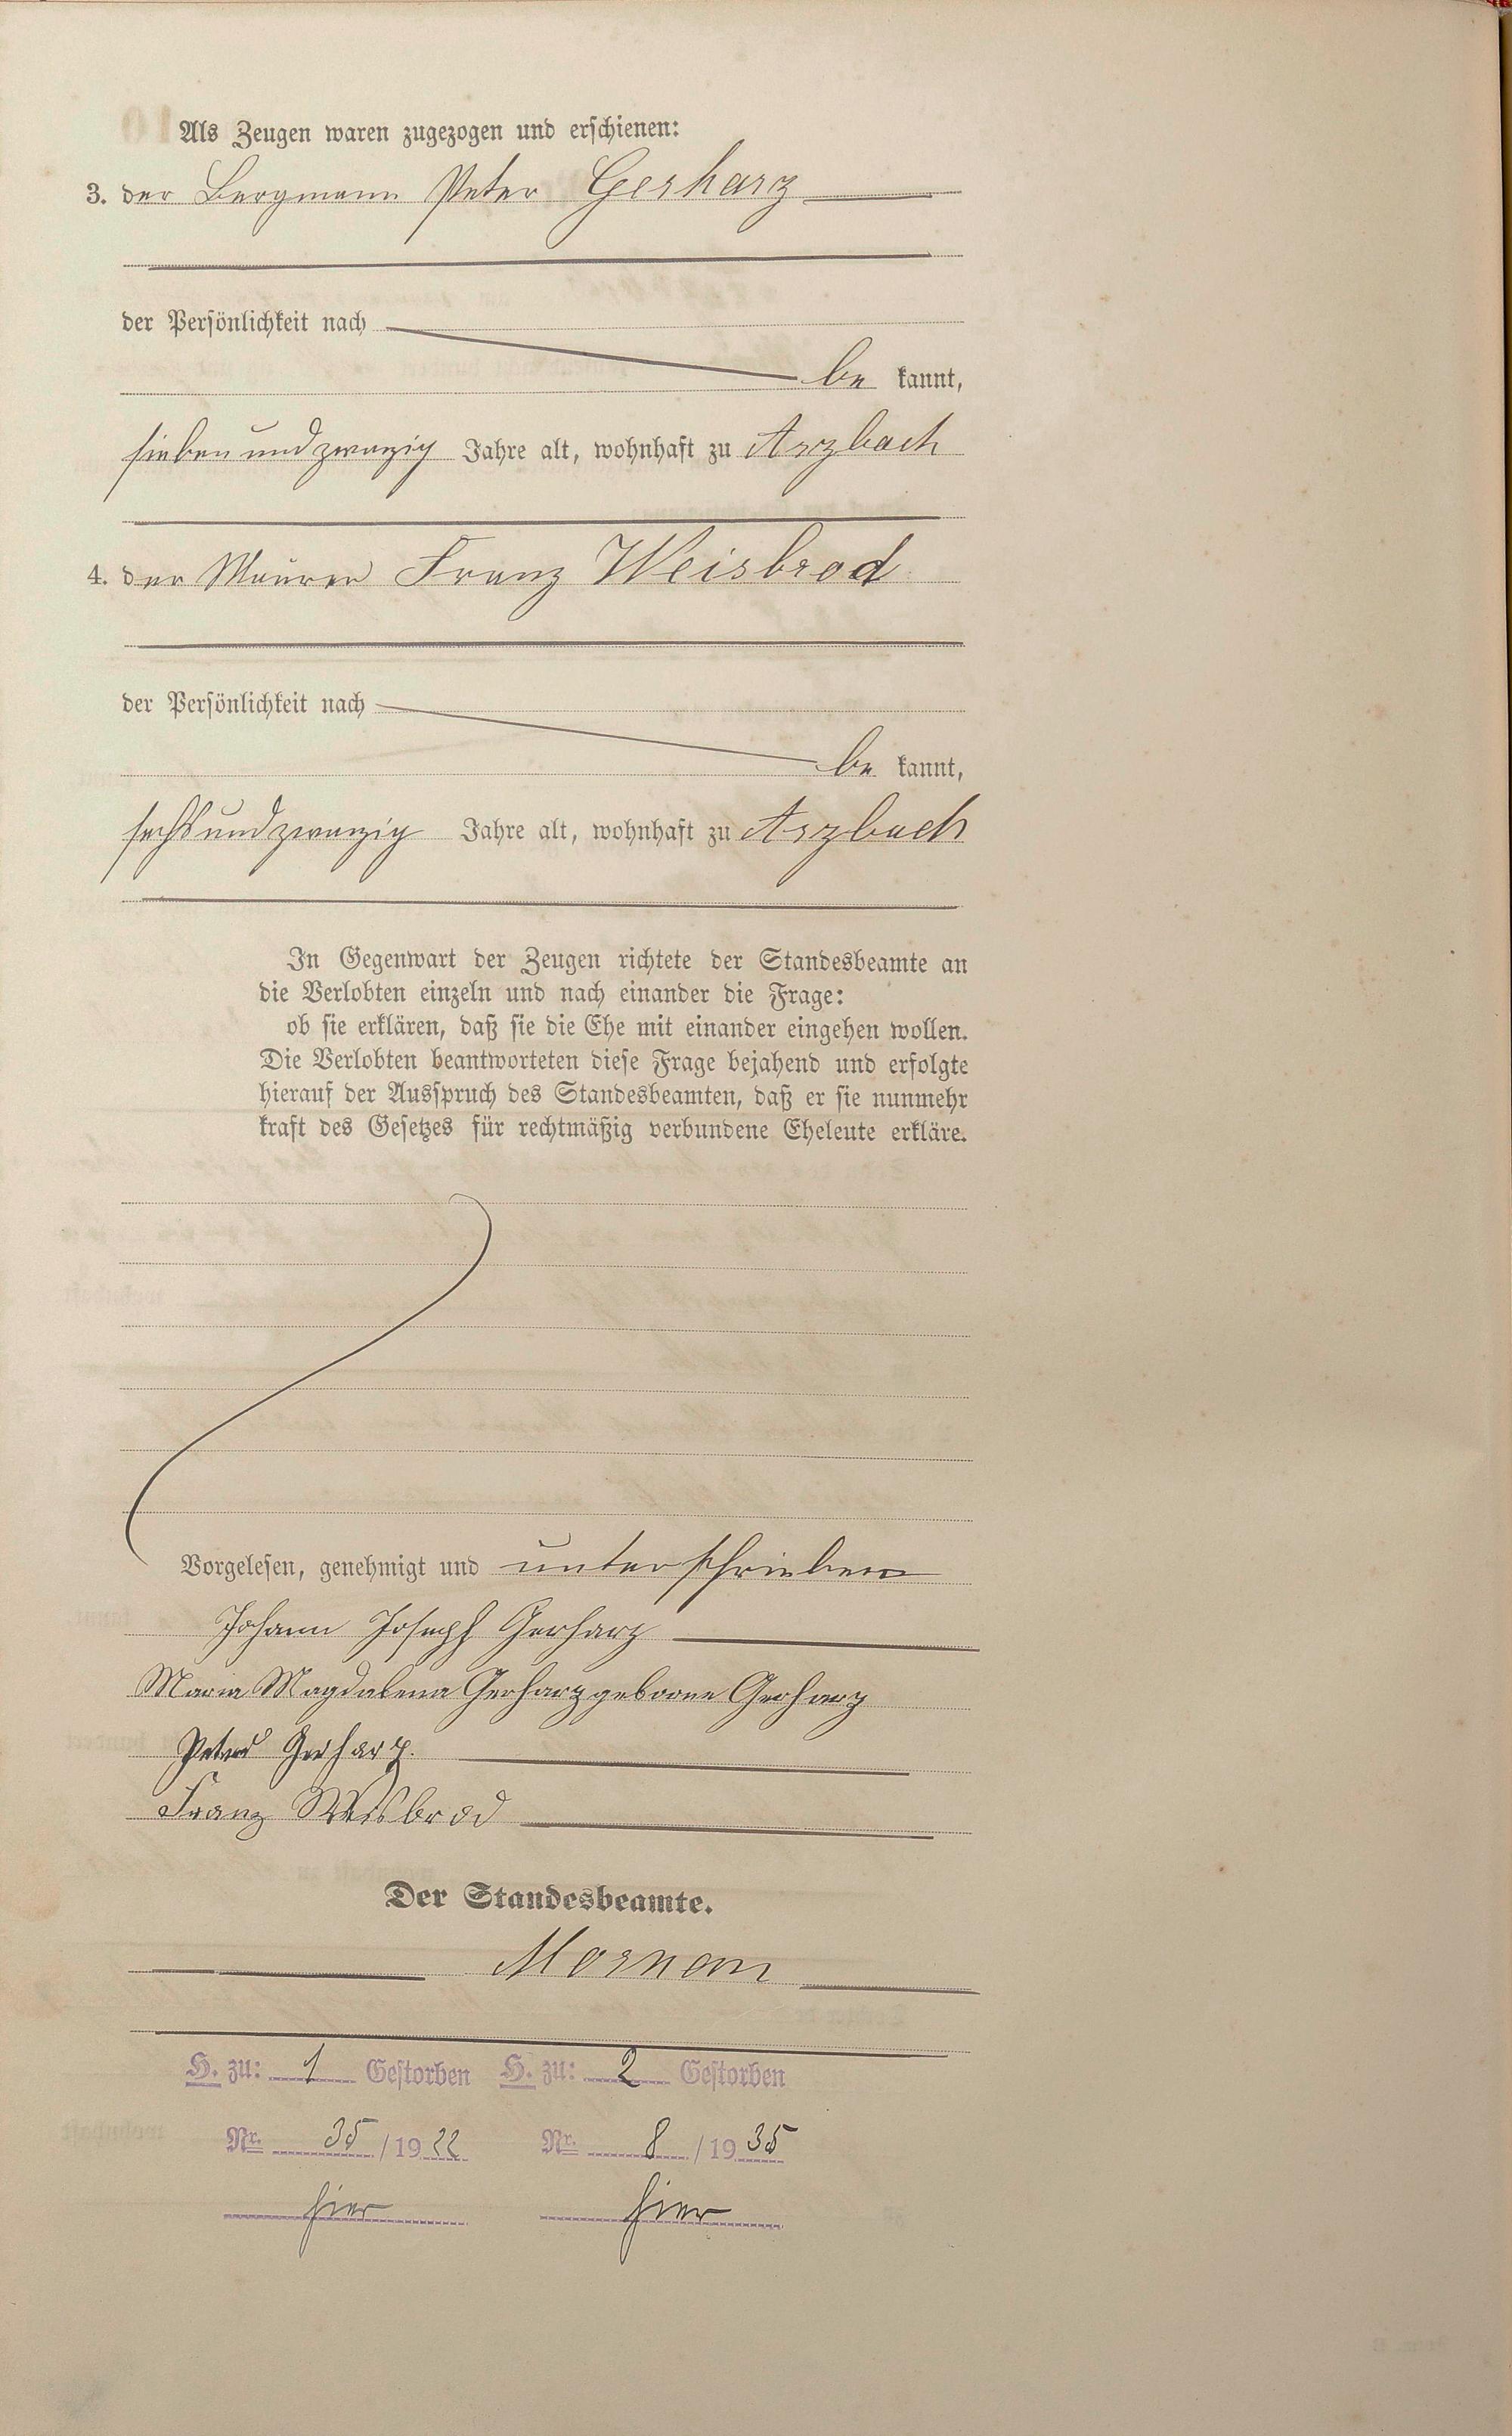 Als Zeugen waren zugezogen und erschienen:
3. der Bergmann Peter Gerharz
der Persönlichkeit nach
be kannt,
sieben und zwanzig Jahre alt, wohnhaft zu Arzbach
4. der Maurer Franz Weisbrod
der Persönlichkeit nach
be kannt,
sechs und zwanzig Jahre alt, wohnhaft zu Arzbach
In Gegenwart der Zeugen richtete der Standesbeamte an
die Verlobten einzeln und nach einander die Frage:
ob sie erklären, daß sie die Ehe mit einander eingehen wollen.
Die Verlobten beantworteten diese Frage bejahend und erfolgte
hierauf der Ausspruch des Standesbeamten, daß er sie nunmehr
kraft des Gesetzes für rechtmäßig verbundene Eheleute erkläre.
Vorgelesen, genehmigt und unterschrieben
Johann Joseph Gerharz
Maria Magdalena Gerharz geborne Gerharz
Peter Gerharz.
Franz Weisbrod
Der Standesbeamte.
Mornan
H. zu: 1 Gestorben H. zu: 2 Gestorben
Nr. 35 / 1922 Nr. 8 / 1935
hier hier